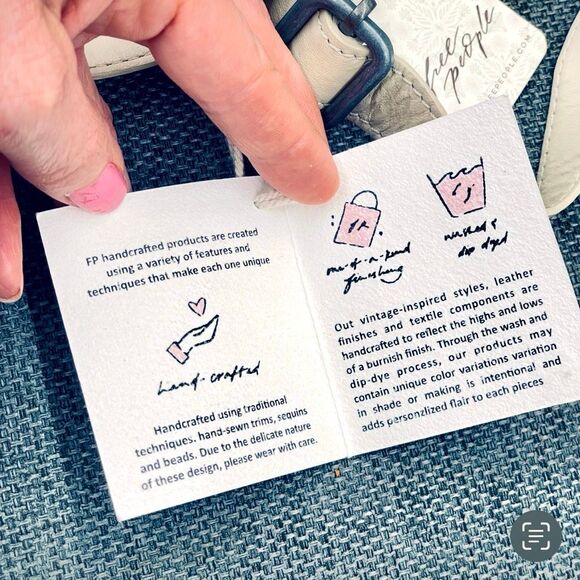 free
people
EEPEOPLE.COM
FP handcrafted products are created
using a variety of features and
techniques that make each one unique
hand-crafted
Handcrafted using traditional
techniques, hand-sewn trims, sequins
and beads. Due to the delicate nature
of these design, please wear with care.
FP
one-of-a-kind
finishing
washed &
dip dyed
Out vintage-inspired styles, leather
finishes and textile components are
handcrafted to reflect the highs and lows
of a burnish finish. Through the wash and
dip-dye process, our products may
contain unique color variations variation
in shade or making is intentional and
adds personalized flair to each pieces